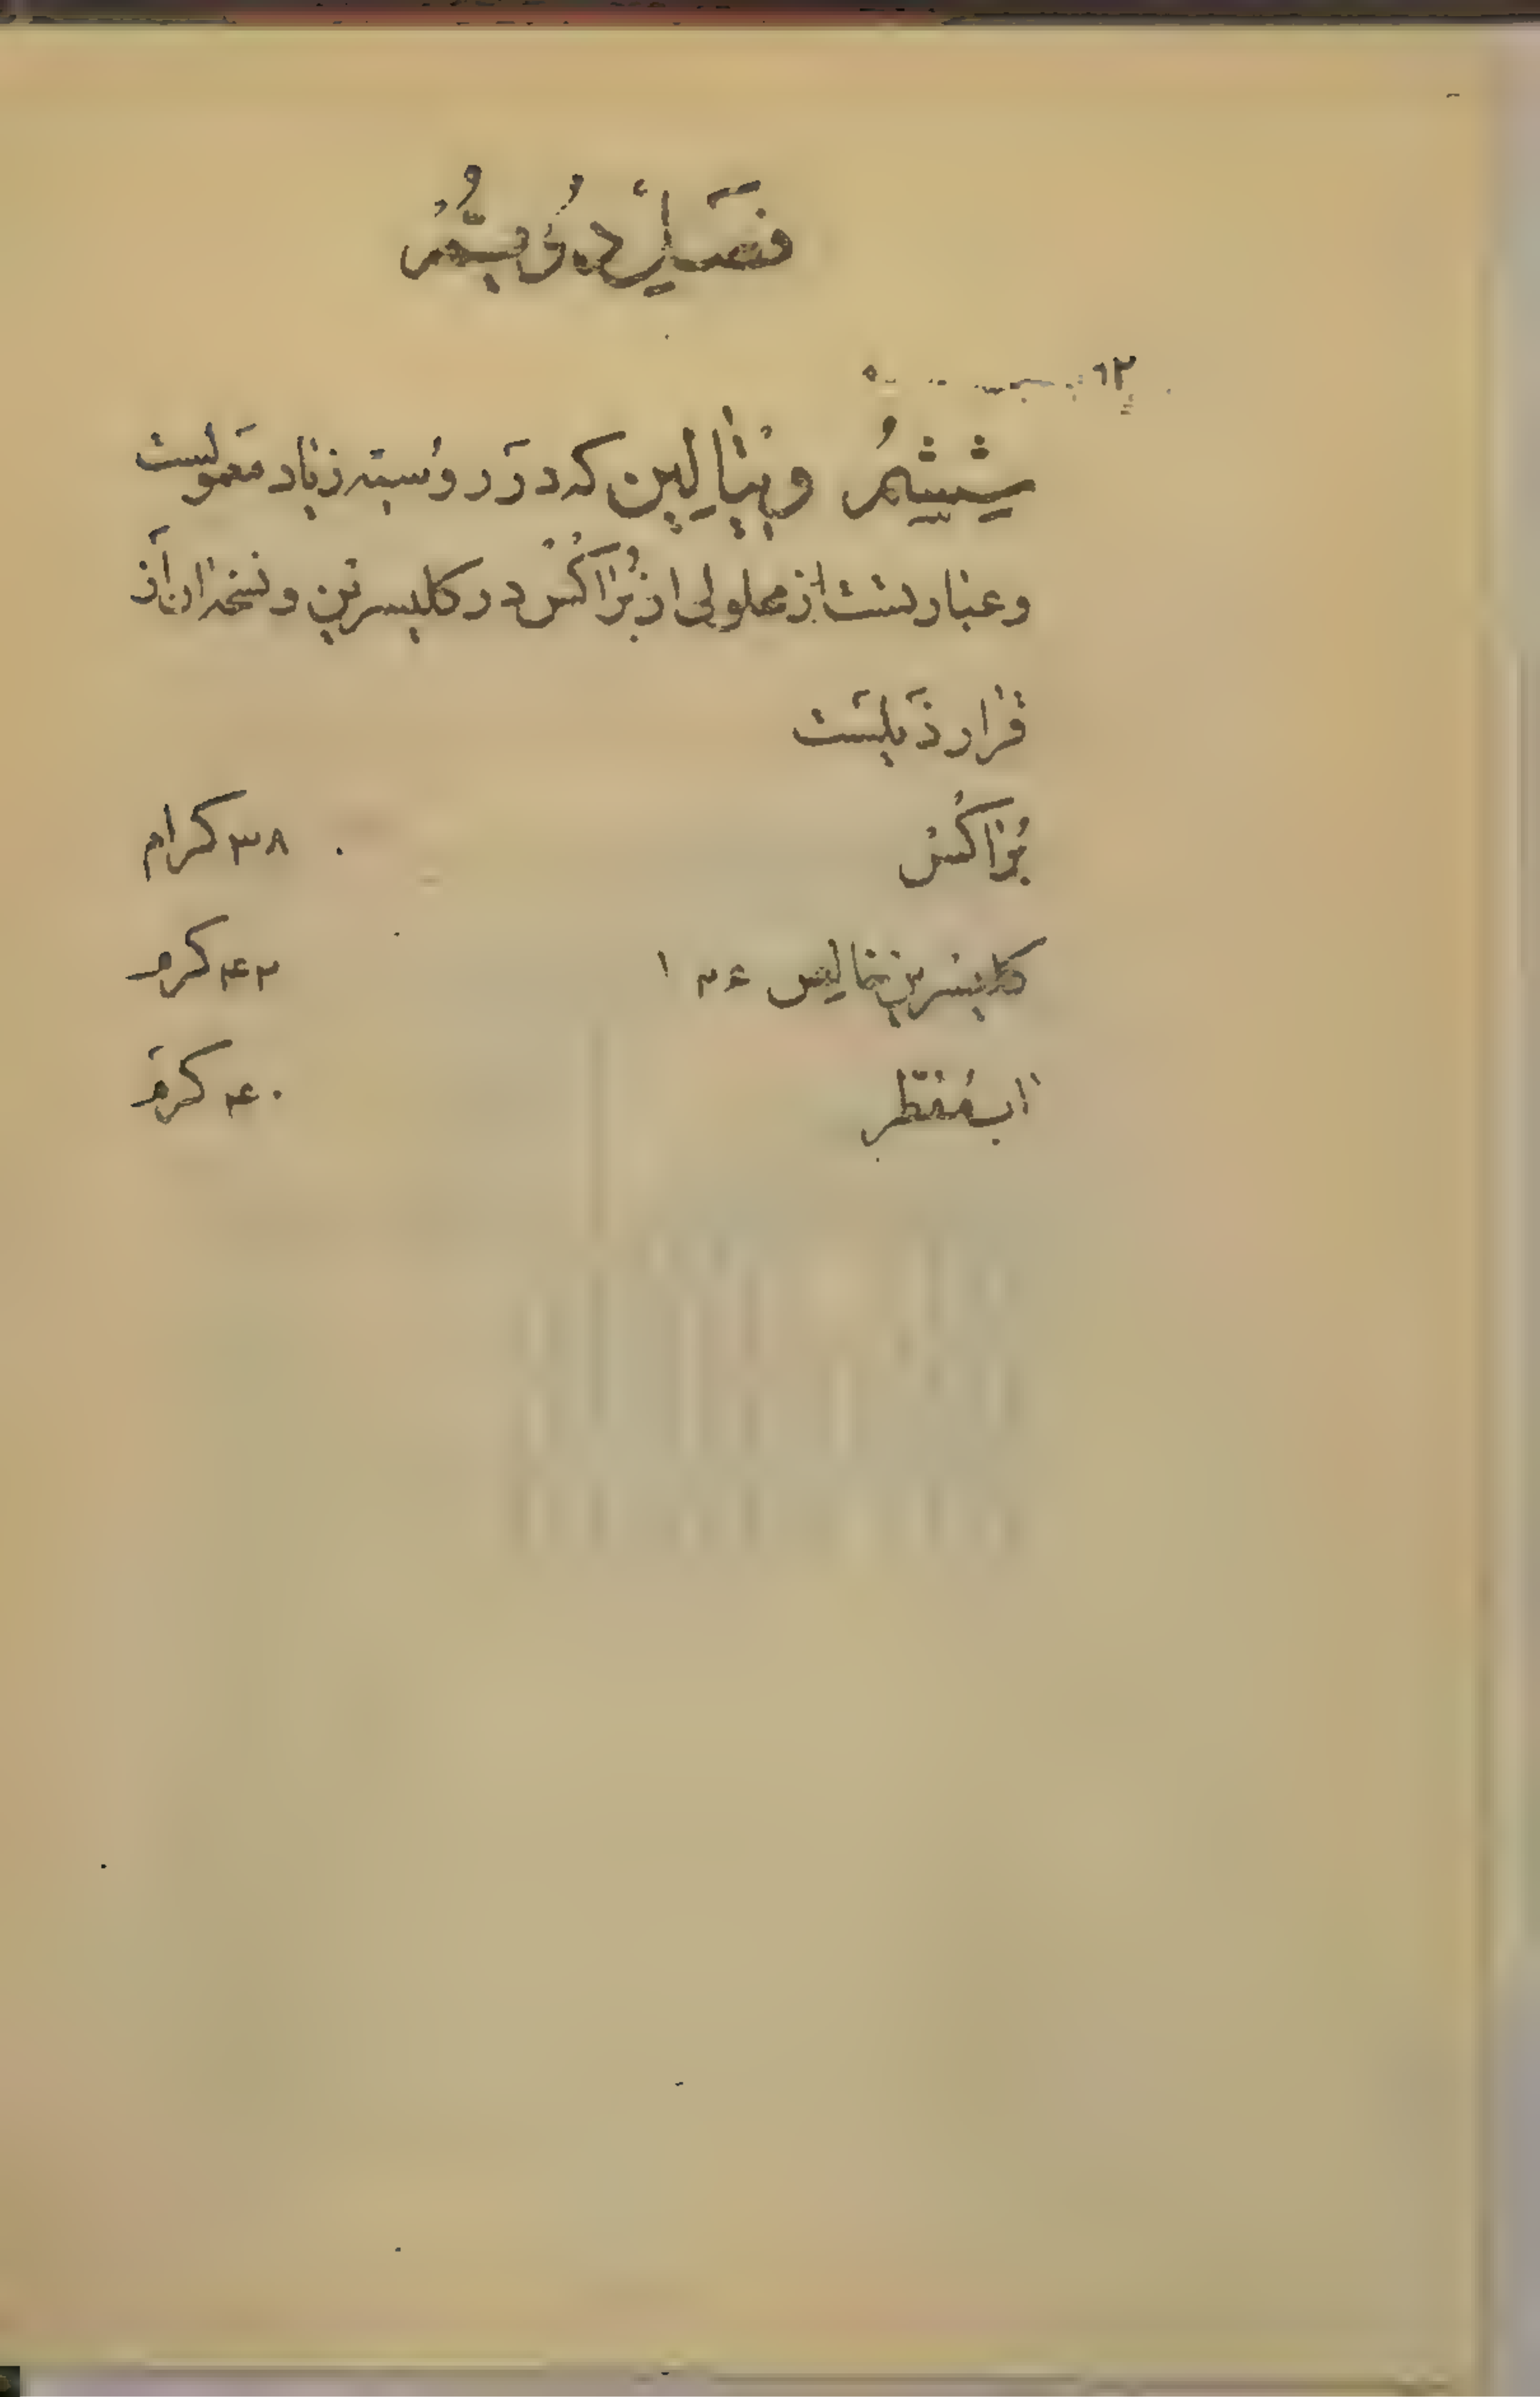 فَصلِ دُویُّمُ
۱۲
شِیشُمُ ویتالین که در روُسیّه زیاد مَعمولست
و عبارتست از محلولی از بُراکُسْ در کلیسرین و نسخه آن اَز
قرار ذَیلَست
بُراکُسْ ۳۸ کرام
کلیسرین خالِص ۱۲۶ ۴۲ کرم
آب مُقَطّر ۴۰ کرَم